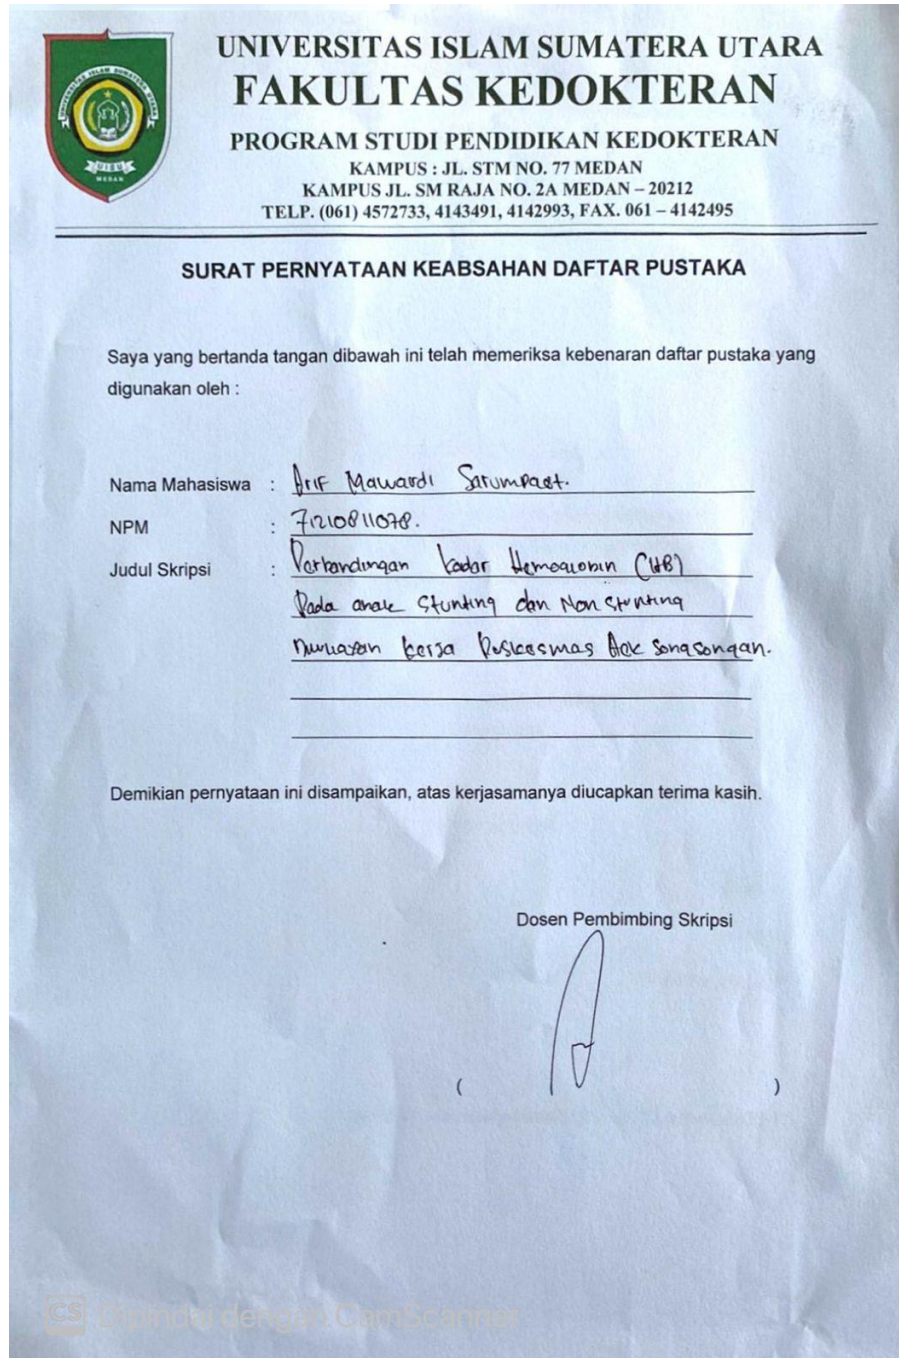 UNIVERSITAS ISLAM SUMATERA UTARA
FAKULTAS KEDOKTERAN
PROGRAM STUDI PENDIDIKAN KEDOKTERAN
KAMPUS : JL. STM NO. 77 MEDAN
KAMPUS JL. SM RAJA NO. 2A MEDAN – 20212
TELP. (061) 4572733, 4143491, 4142993, FAX. 061 – 4142495
UNIVERSITAS ISLAM SUMATERA UTARA
UISU
MEDAN
SURAT PERNYATAAN KEABSAHAN DAFTAR PUSTAKA
Saya yang bertanda tangan dibawah ini telah memeriksa kebenaran daftar pustaka yang
digunakan oleh :
Nama Mahasiswa : Arif Mawardi Sarumpaet.
NPM : 71210811078.
Judul Skripsi : Perbandingan kadar Hemoglobin (HB)
Pada anak Stunting dan Non Stunting
kerja Puskesmas Aek Songsongan.
Demikian pernyataan ini disampaikan, atas kerjasamanya diucapkan terima kasih.
Dosen Pembimbing Skripsi
( )
CS Dipindai dengan CamScanner